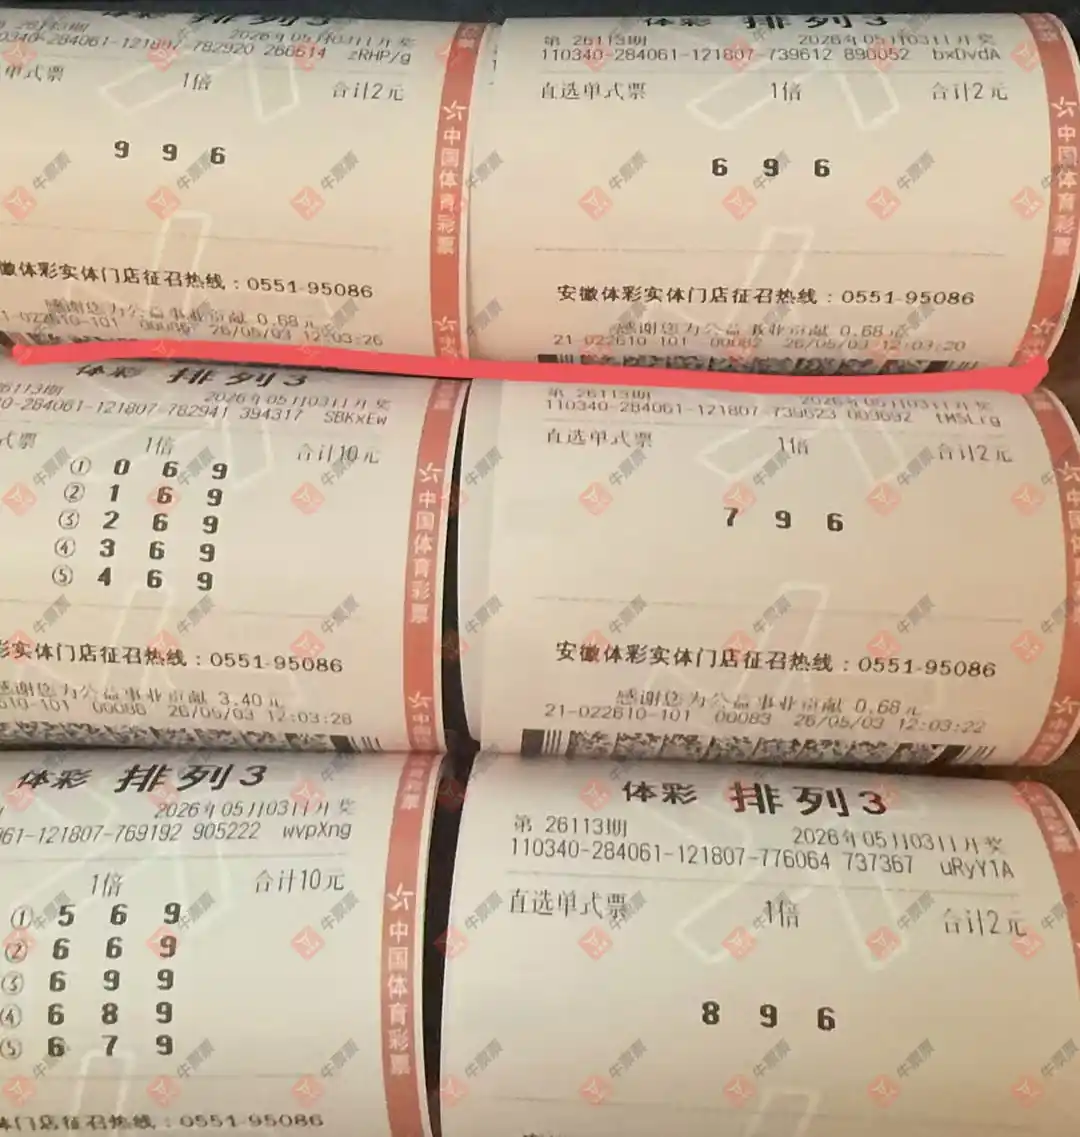 体彩 排列3
2026年05月03日开奖
-284061-121807-782920 260614 zRHP/g
单式票 1倍 合计2元
9 9 6
徽体彩实体门店征召热线：0551-95086
感谢您为公益事业贡献 0.68元
26/05/03 12:03:26
中国体育彩票
体彩 排列3
第 26113期 2026年05月03日开奖
110340-284061-121807-739612 890052 bxDvdA
直选单式票 1倍 合计2元
6 9 6
安徽体彩实体门店征召热线：0551-95086
感谢您为公益事业贡献 0.68元
21-022610-101 00082 26/05/03 12:03:20
中国体育彩票
体彩 排列3
2026年05月03日开奖
0-284061-121807-782941 394317 SBKxEw
式票 1倍 合计10元
① 0 6 9
② 1 6 9
③ 2 6 9
④ 3 6 9
⑤ 4 6 9
彩实体门店征召热线：0551-95086
感谢您为公益事业贡献 3.40元
610-101 00088 26/05/03 12:03:28
中国体育彩票
第 26113期 2026年05月03日开奖
110340-284061-121807-739623 003692 tMSLrg
直选单式票 1倍 合计2元
7 9 6
安徽体彩实体门店征召热线：0551-95086
感谢您为公益事业贡献 0.68元
21-022610-101 00083 26/05/03 12:03:22
中国体育彩票
体彩 排列3
2026年05月03日开奖
061-121807-769192 905222 wvpXng
1倍 合计10元
① 5 6 9
② 6 6 9
③ 6 9 9
④ 6 8 9
⑤ 6 7 9
体门店征召热线：0551-95086
中国体育彩票
体彩 排列3
第 26113期 2026年05月03日开奖
110340-284061-121807-776064 737367 uRyY1A
直选单式票 1倍 合计2元
8 9 6
牛票票